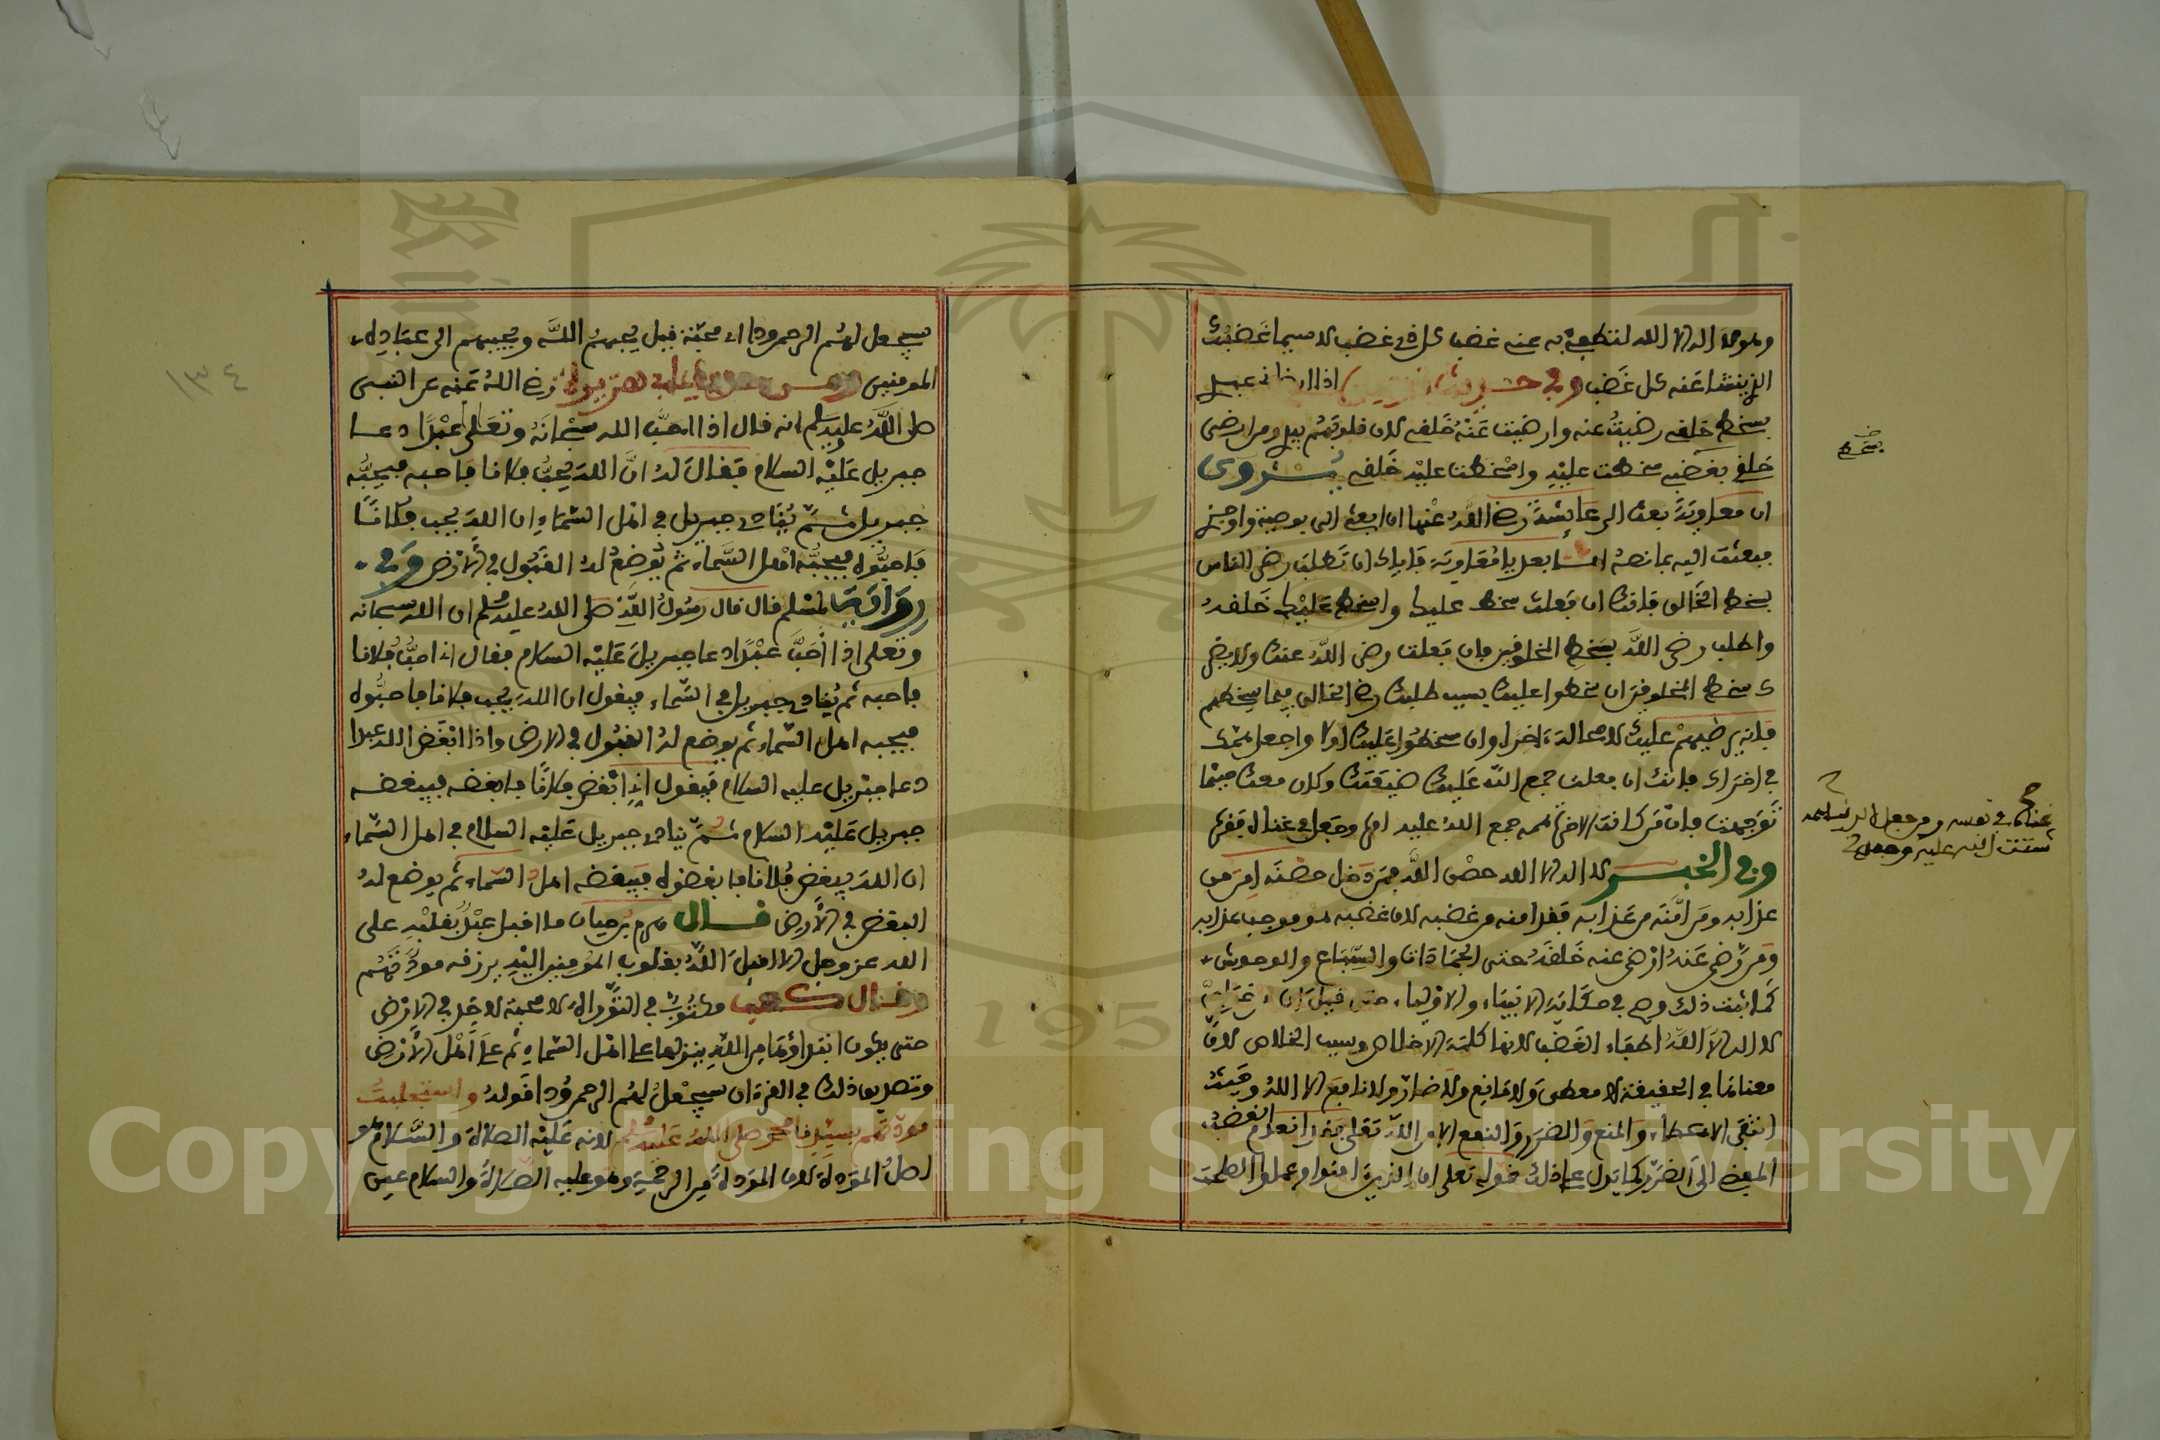 وهو لا اله الا الله لتطفئ به عنه غضب كل ذي غضب لا سيما غضب
الذي ينشا عنه كل غضب وفي حديث
بسخط خلقه رضيت عنه وارضيت عنه خلقه لان قلوبهم بيدي ومن ارضى
خلقي بغضبي سخطت عليه واسخطت عليه خلقي يروى
ان معاوية بعث الى عائشة رضي الله عنها ان ابعثي الي بوصية واوجزي
فبعثت اليه بما نصه اما بعد يا معاوية فاياك ان تطلب رضى الناس
بسخط الخالق فانك ان فعلت سخط عليك واسخط عليك خلقه
واطلب رضى الله بسخط المخلوقين فان فعلت رضي الله عنك ولا يضر
ك سخط المخلوقين ان سخطوا عليك بسبب طلبك رضى الخالق فيما يسخطهم
فانه يرضيهم عليك لا محالة اخرا وان سخطوا عليك اولا واجعل همك
في اخراك فانك ان فعلت جمع الله عليك ضيعتك وكان معك حيثما
توجهت فان من كانت الاخرة همه جمع الله عليه امره وجعل
وفي الخبر لا اله الا الله حصن الله فمن دخل حصنه امن من
عذابه ومن امنه من عذابه فقد امنه من غضبه لان غضبه هو موجب عذابه
ومن رضي عنه ارضى عنه خلقه حتى الجمادات والسباع والوحوش
كما ثبت ذلك وصح في حكاية الانبياء والاولياء حتى قيل ان
لا اله الا الله اطفاء الغضب لانها كلمة الاخلاص وسبب الخلاص لان
معناها في الحقيقة لا معطي ولا مانع ولا ضار ولا نافع الا الله وحيث
انتفى الاعطاء والمنع والضر والنفع الا من الله تعلى انعدم الغضب
المفضي الى الضرر كما يدل على ذلك قوله تعلى ان الذين امنوا وعملوا الصلحت
بسخط
سيجعل لهم الرحمن ودا اي محبة قيل يحبهم الله ويحببهم الى عباده
المومنين ابي هريرة رضي الله عنه عن النبي
صلى الله عليه وسلم انه قال اذا احب الله سبحانه وتعلى عبدا دعا
جبريل عليه السلام فقال له ان الله يحب فلانا فاحبه فيحبه
جبريل ثم ينادي جبريل في اهل السماء ان الله يحب فلانا
فاحبوه فيحبه اهل السماء ثم يوضع له القبول في الارض وفي
رواية لمسلم قال قال رسول الله صلى الله عليه وسلم ان الله سبحانه
وتعلى اذا احب عبدا دعا جبريل عليه السلام فقال اني احب فلانا
فاحبه ثم ينادي جبريل في السماء فيقول ان الله يحب فلانا فاحبوه
فيحبه اهل السماء ثم يوضع له القبول في الارض واذا ابغض الله عبدا
دعا جبريل عليه السلام فيقول اني ابغض فلانا فابغضه فيبغضه
جبريل عليه السلام ثم ينادي جبريل عليه السلام في اهل السماء
ان الله يبغض فلانا فابغضوه فيبغضه اهل السماء ثم يوضع له
البغض في الارض قال هرم بن حيان ما اقبل عبد بقلبه على
الله عز وجل الا اقبل الله بقلوب المومنين اليه يرزقه مودتهم
وقال كعب مكتوب في التورية لا محبة لاحد في الارض
حتى يكون ابتداؤها من الله ينزلها على اهل السماء ثم على اهل الارض
وتصديق ذلك في القرءان سيجعل لهم الرحمن ودا قوله واستجلبت
مودتهم بسيدنا محمد صلى الله عليه وسلم لانه عليه الصلاة والسلام هو
اصل المودة لان المودة من الرحمة وهو عليه الصلاة والسلام عين
١٣٤
Copyright © King Saud University
195